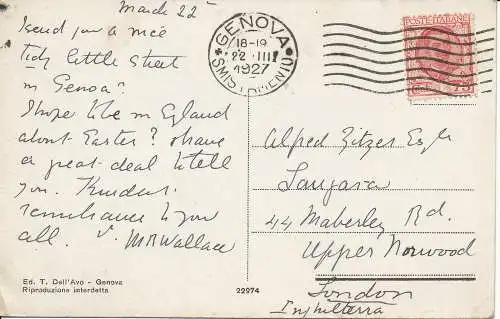 March 22
I send you a nice
tidy little street
in Genoa?
I hope to be in England
about Easter? I have
a great deal to tell
you. Kindest
remembrance to you
all. MRWallace
Ed. T. Dell'Avo - Genova
Riproduzione interdetta
22974
GENOVA
18-19
22 III
1927
SMISTAMENTO
POSTE ITALIANE
75
Alfred Zitzer Esqre
Langara
44 Maberley Rd.
Upper Norwood
London
Inghilterra